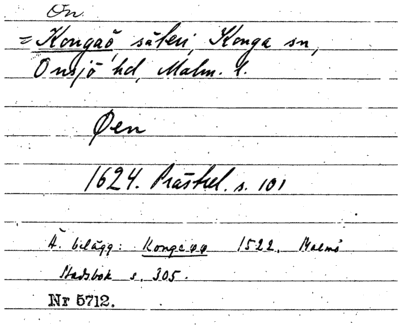 Ön
= Kongaö säteri, Konga sn,
Onsjö hd, Malm. l.
Øen
1624. Prästrel. s. 101
Ä. belägg: Kongaøø 1522. Malmö
stadsbok s. 305.
Nr 5712.